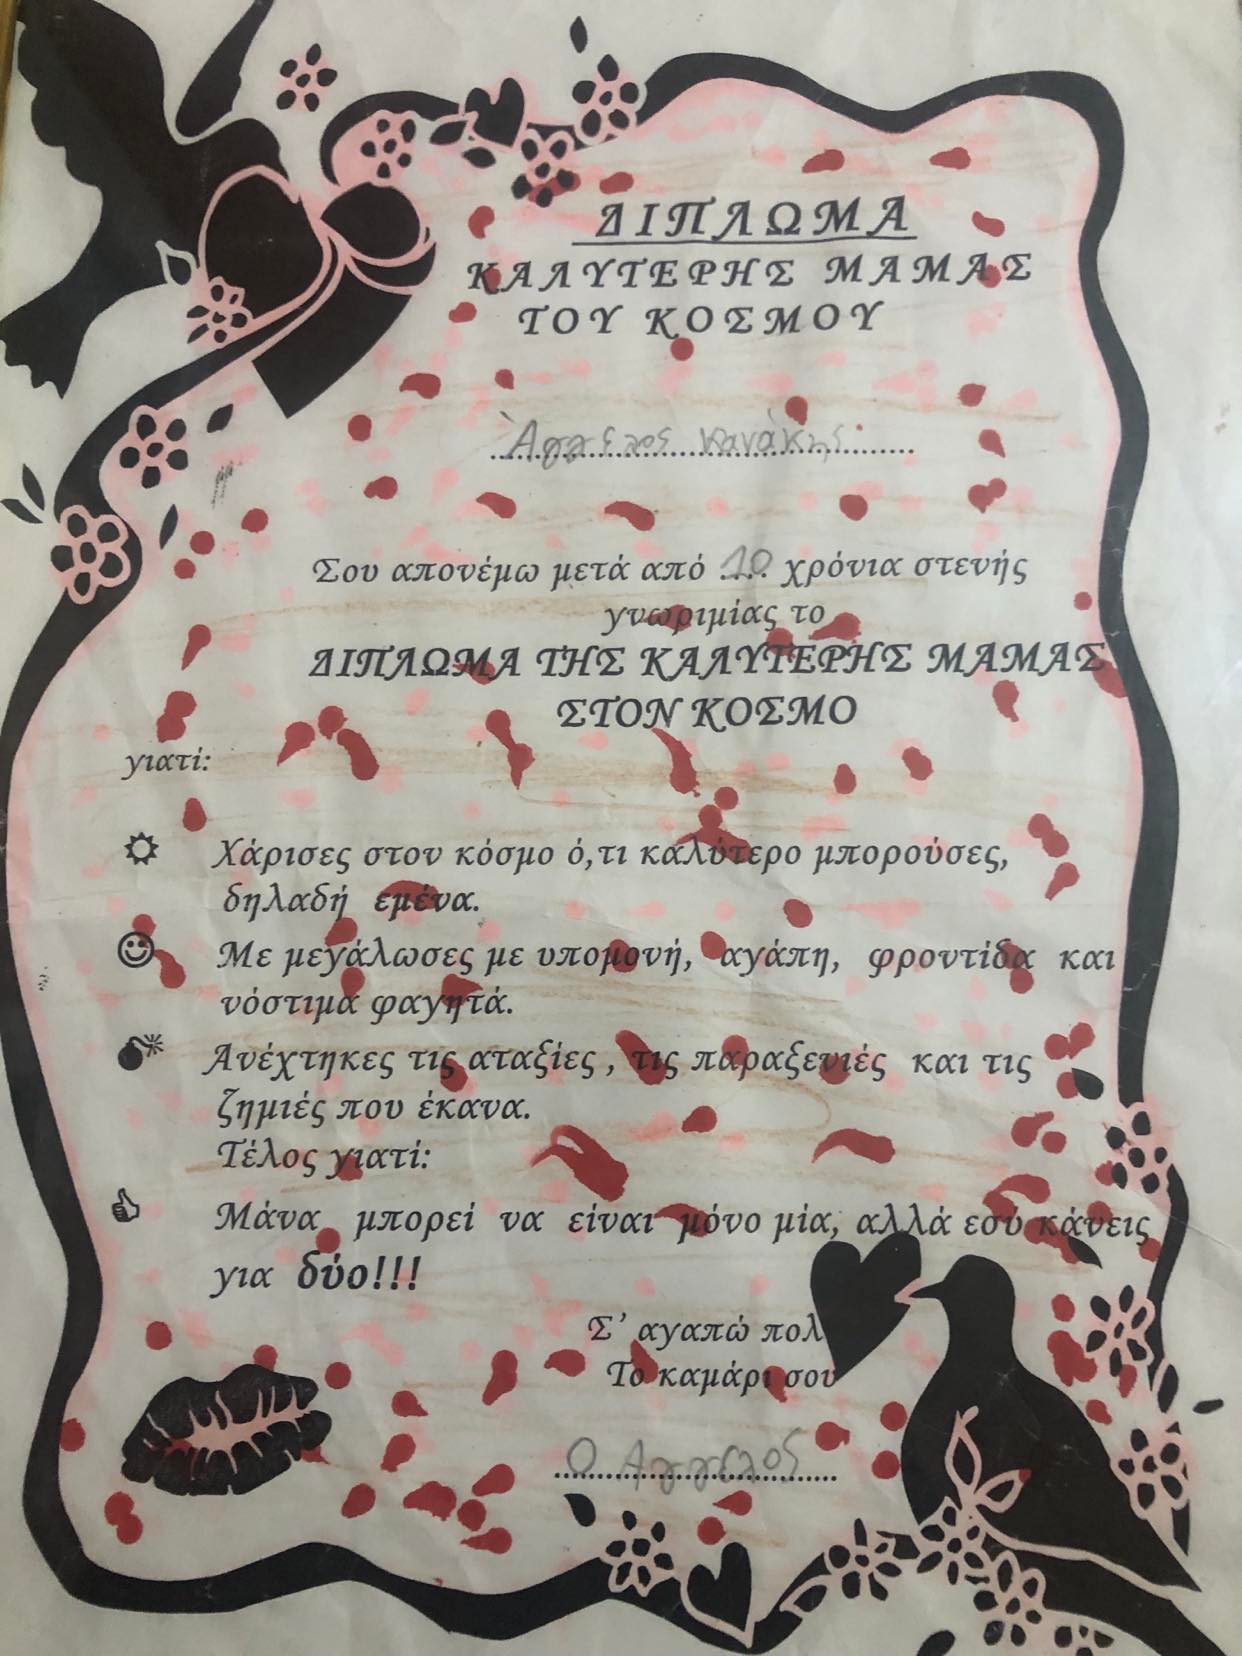 ΔΙΠΛΩΜΑ
ΚΑΛΥΤΕΡΗΣ ΜΑΜΑΣ
ΤΟΥ ΚΟΣΜΟΥ
Άγγελος Κανάκης
Σου απονέμω μετά από 10 χρόνια στενής
γνωριμίας το
ΔΙΠΛΩΜΑ ΤΗΣ ΚΑΛΥΤΕΡΗΣ ΜΑΜΑΣ
ΣΤΟΝ ΚΟΣΜΟ
γιατί:
Χάρισες στον κόσμο ό,τι καλύτερο μπορούσες,
δηλαδή εμένα.
Με μεγάλωσες με υπομονή, αγάπη, φροντίδα και
νόστιμα φαγητά.
Ανέχτηκες τις αταξίες , τις παραξενιές και τις
ζημιές που έκανα.
Τέλος γιατί:
Μάνα μπορεί να είναι μόνο μία, αλλά εσύ κάνεις
για δύο!!!
Σ' αγαπώ πολ
Το καμάρι σου
Ο Άγγελος